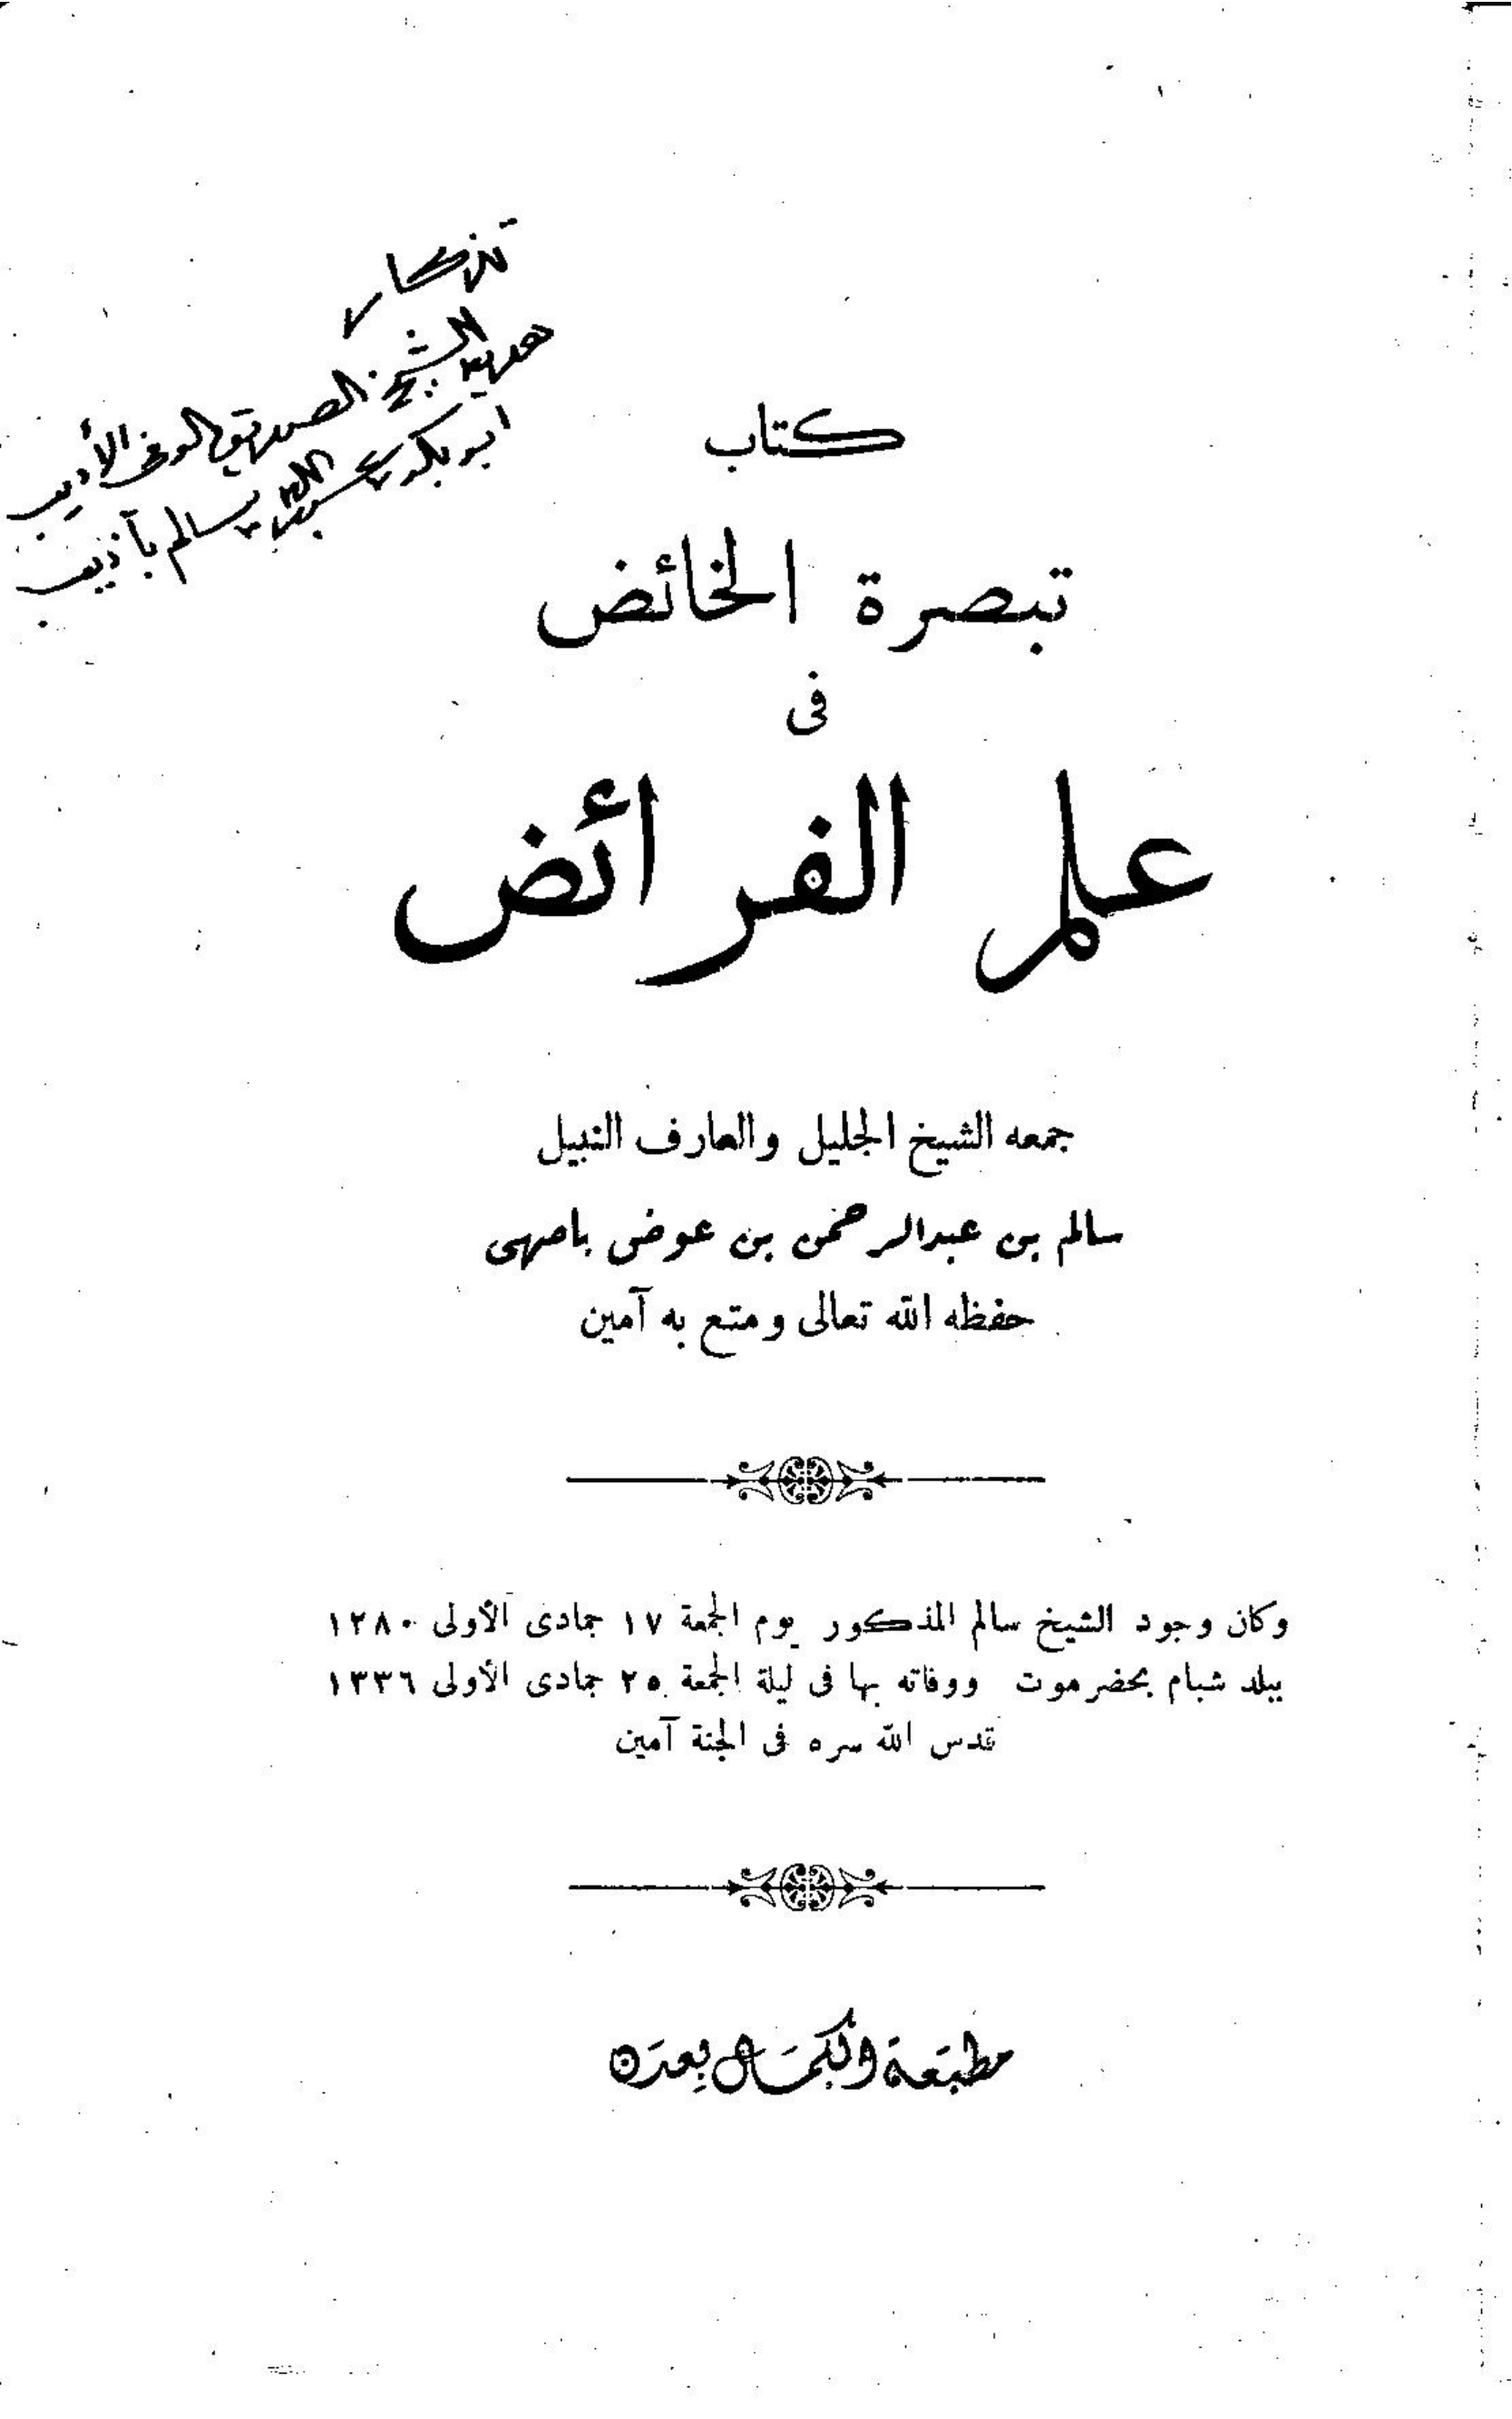 تذكار
هدية الشيخ الصديق الوفي الأديب
ابو بكر عبد الله سالم باذيب
كتاب
تبصرة الخائض
فى
علم الفرائض
جمعه الشيخ الجليل والعارف النبيل
سالم بن عبدالرحمن بن عوض باصهى
حفظه الله تعالى ومتع به آمين
وكان وجود الشيخ سالم المذكور يوم الجمعة ١٧ جمادى الأولى ١٢٨٠
ببلد شبام بحضرموت ووفاته بها فى ليلة الجمعة ٢٥ جمادى الأولى ١٣٣٦
قدس الله سره فى الجنة آمين
مطبعة الكمال بعدن